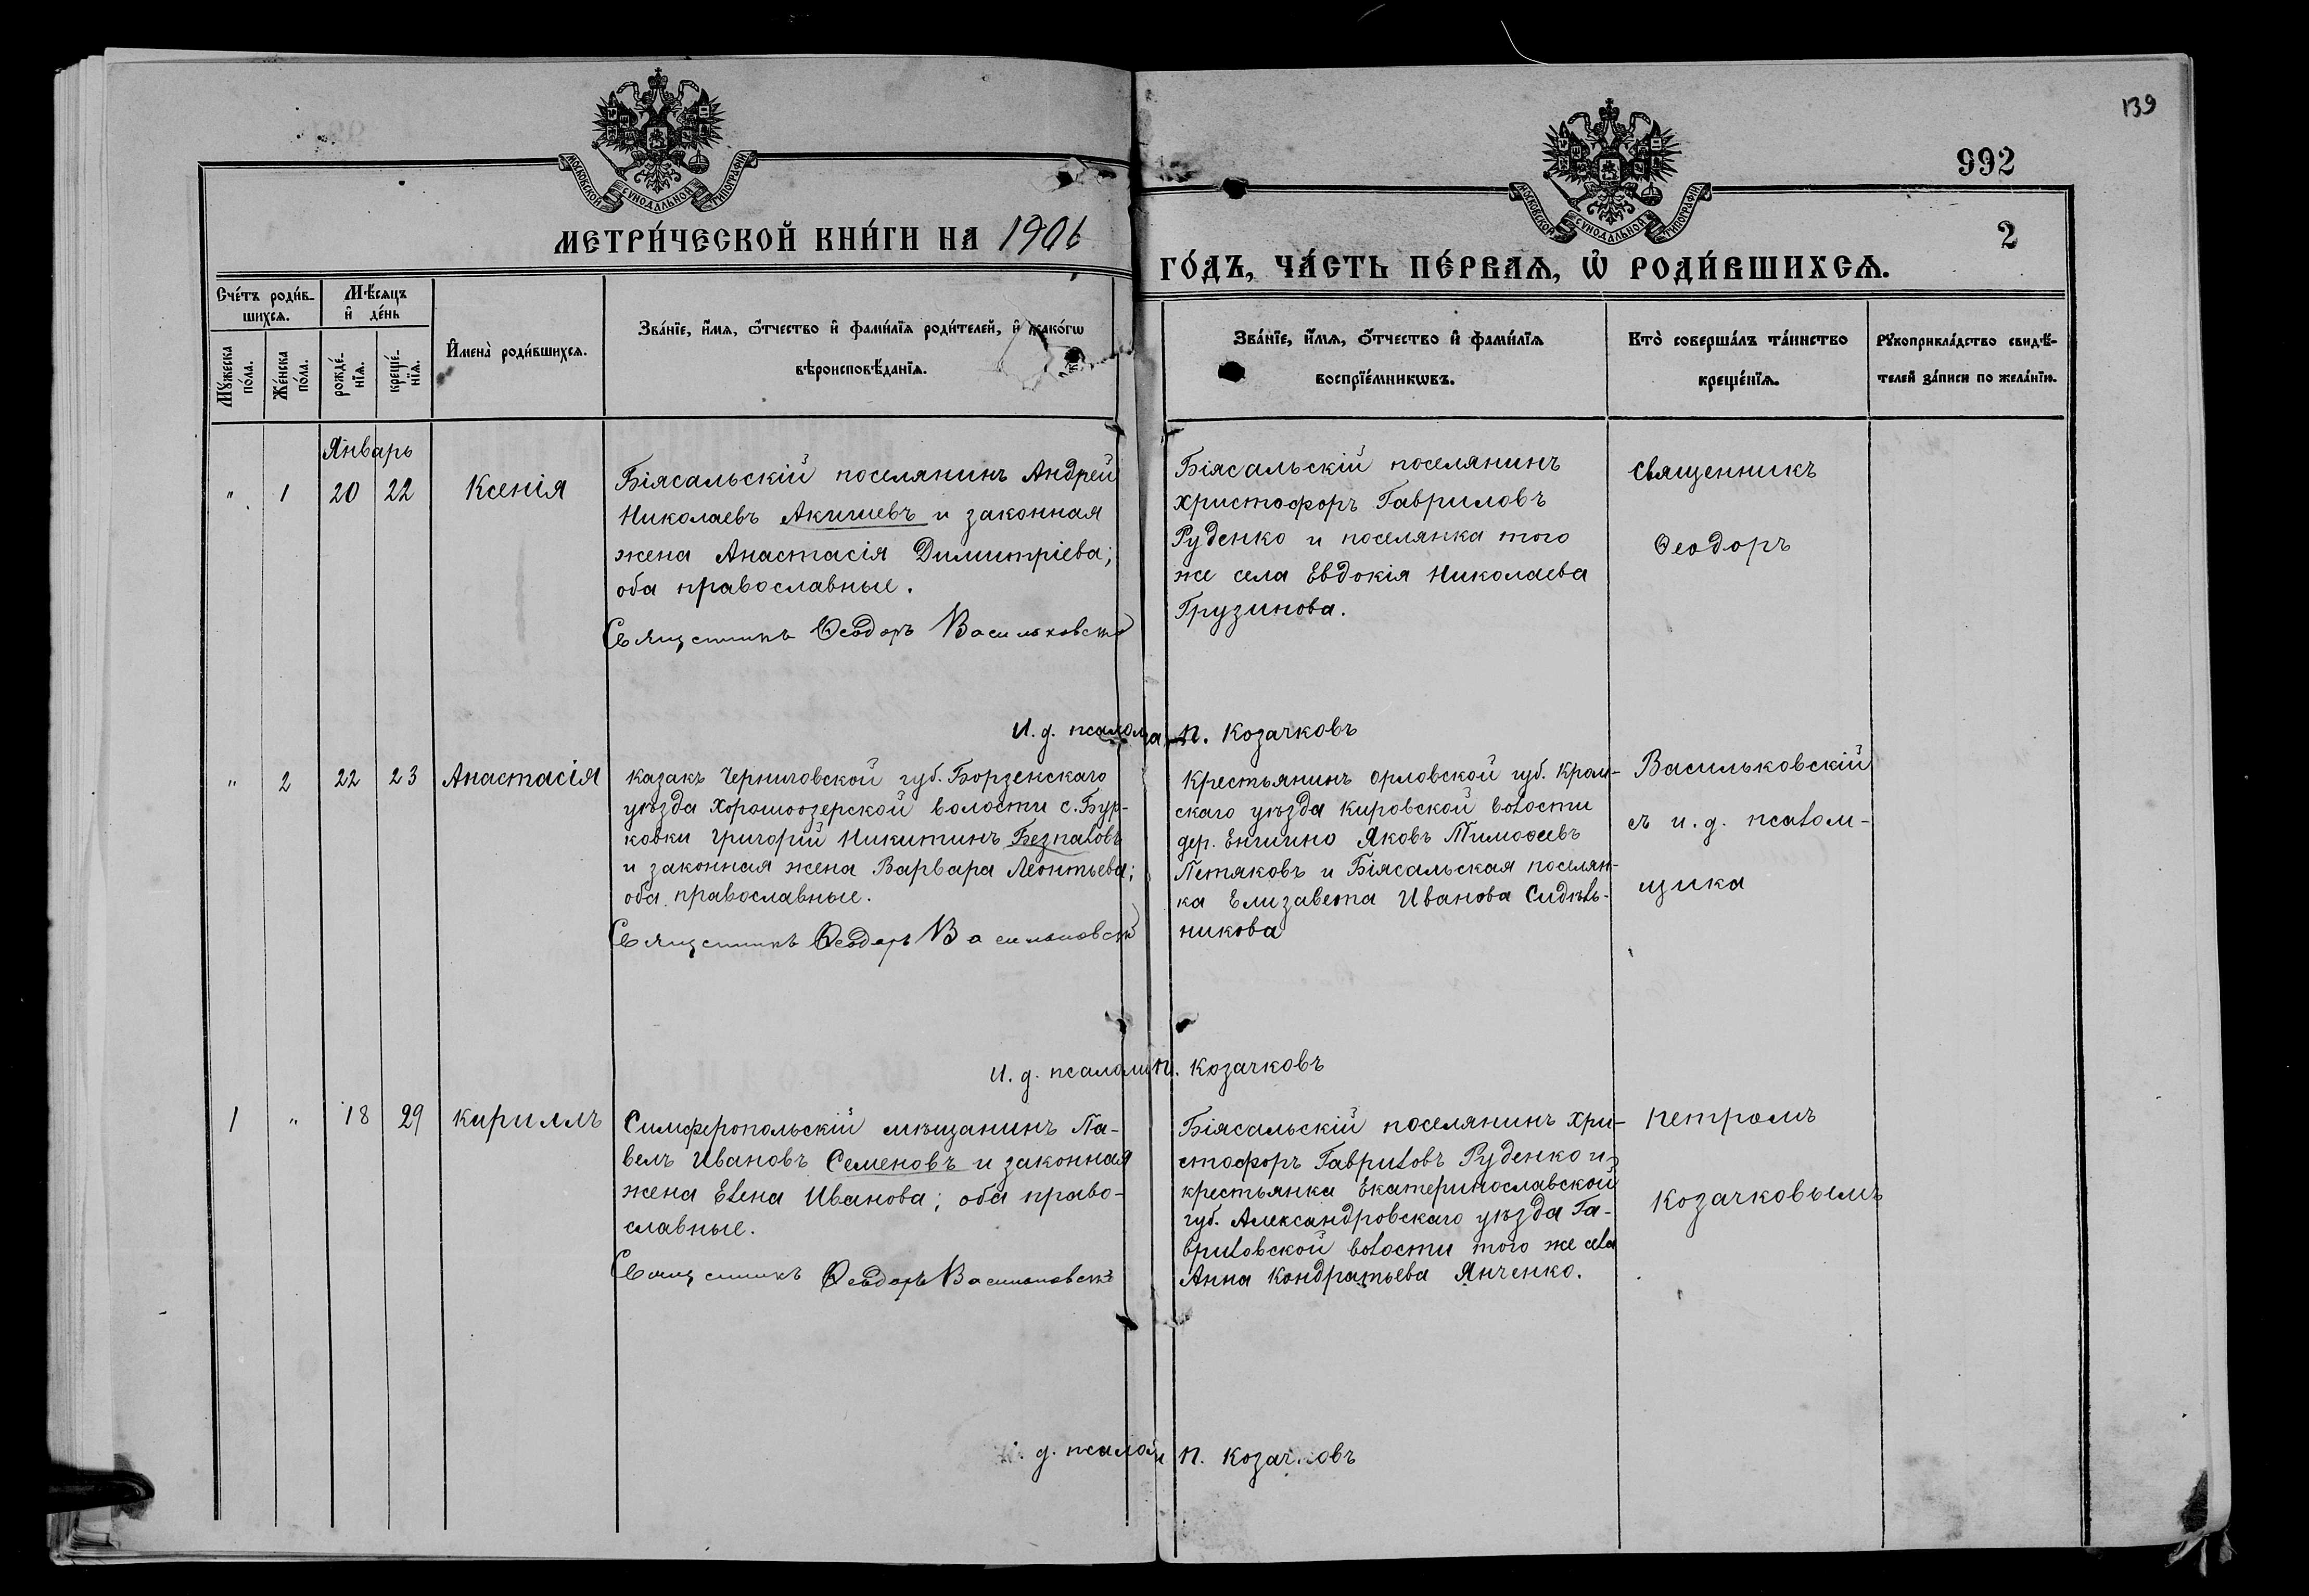 139
992
2
МОСКОВСКОЙ СУНОДАЛЬНОЙ ТИПОГРАФІИ
МОСКОВСКОЙ СУНОДАЛЬНОЙ ТИПОГРАФІИ
МЕТРИ́ЧЕСКОЙ КНИ́ГИ НА 1906
ГО́ДЪ, ЧА́СТЬ ПЕ́РВАѦ, Ѡ҆ РОДИ́ВШИХСѦ.
Сче́тъ роди́в-
шихсѧ.
Мѣ́сѧцъ
и҆ де́нь
Мꙋ́жеска
по́ла.
Же́нска
по́ла.
рожде́-
нїѧ.
креще́-
нїѧ.
И҆мена̀ роди́вшихсѧ.
Зва́нїе, и҆́мѧ, ѻ҆́тчество и҆ фами́лїѧ роди́телей, и҆ како́гѡ
вѣроисповѣ́данїѧ.
Зва́нїе, и҆́мѧ, ѻ҆́тчество и҆ фами́лїѧ
воспрїе́мникѡвъ.
Кто̀ соверша́лъ та́инство
креще́нїѧ.
Рꙋкоприкла́дство свидѣ́-
телей за́писи по жела́нїю.
Январь
" 1 20 22 Ксенія
Біясальскій поселянинъ Андрей
Николаевъ Акишевъ и законная
жена Анастасія Димитріева;
оба православные.
Священникъ Ѳеодоръ Васильковскій
Біясальскій поселянинъ
Христофоръ Гавриловъ
Руденко и поселянка того
же села Евдокія Николаева
Грузинова.
Священникъ
Ѳеодоръ
И. д. псаломщ. П. Козачковъ
" 2 22 23 Анастасія
Казакъ Черниговской губ. Борзенскаго
уѣзда Хорошоозерской волости с. Бур-
ковки Григорій Никитинъ Безпаловъ
и законная жена Варвара Леонтьева;
оба православные.
Священникъ Ѳеодоръ Васильковскій
Крестьянинъ Орловской губ. Кром-
скаго уѣзда Кировской волости
дер. Яковъ Тимоѳеевъ
Петяковъ и Біясальская поселян-
ка Елизавета Иванова Сидѣль-
никова
Васильковскій
съ и. д. псалом-
щика
И. д. псаломщ. П. Козачковъ
1 " 18 29 Кириллъ
Симферопольскій мѣщанинъ Па-
велъ Ивановъ Семеновъ и законная
жена Елена Иванова; оба право-
славные.
Священникъ Ѳеодоръ Васильковскій
Біясальскій поселянинъ Хри-
стофоръ Гавриловъ Руденко и
крестьянка Екатеринославской
губ. Александровскаго уѣзда Га-
вриловской волости того же села
Анна Кондратьева Янченко.
Петромъ
Козачковымъ
И. д. псалом П. Козачковъ